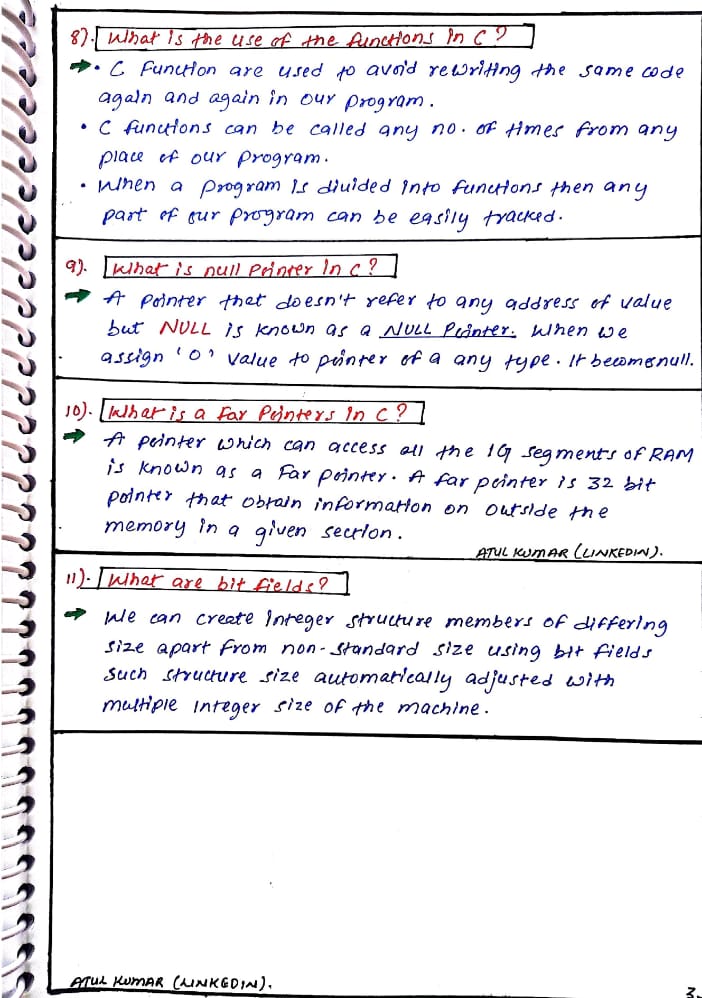 8). What is the use of the functions in C?
• C Function are used to avoid rewriting the same code
again and again in our program.
• C functions can be called any no. of times from any
place of our program.
• When a program is divided into functions then any
part of our program can be easily tracked.
9). What is null Pointer in C?
A pointer that doesn't refer to any address of value
but NULL is known as a NULL Pointer. When we
assign '0' value to pointer of a any type. It becomes null.
10). What is a Far Pointers in C?
A pointer which can access all the 16 segments of RAM
is known as a Far pointer. A far pointer is 32 bit
pointer that obtain information on outside the
memory in a given section.
ATUL KUMAR (LINKEDIN).
11). What are bit fields?
We can create integer structure members of differing
size apart from non-standard size using bit fields
such structure size automatically adjusted with
multiple integer size of the machine.
ATUL KUMAR (LINKEDIN).
3.